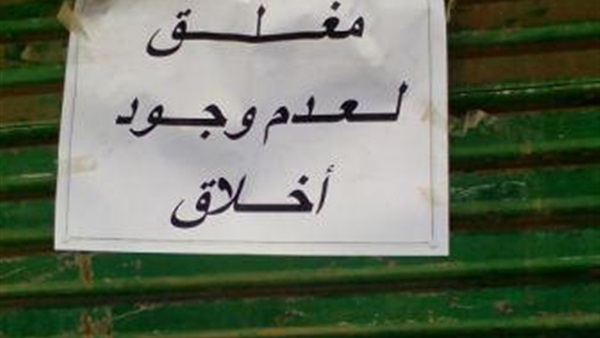 مغلق
لعدم وجود
أخلاق